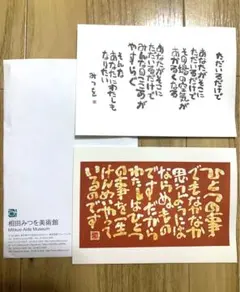 ただいるだけで
あなたがそこに
ただいるだけで
その場の空気が
あかるくなる
あなたがそこに
ただいるだけで
みんなのこころが
やすらぐ
そんな
あなたにわたしも
なりたい
みつを
ひとつの事
でもなかなか
思うようには
ならぬもの
ですだから
わたしはひとつ
の事を一生
けんめいやって
いるのです
相田みつを美術館
Mitsuo Aida Museum